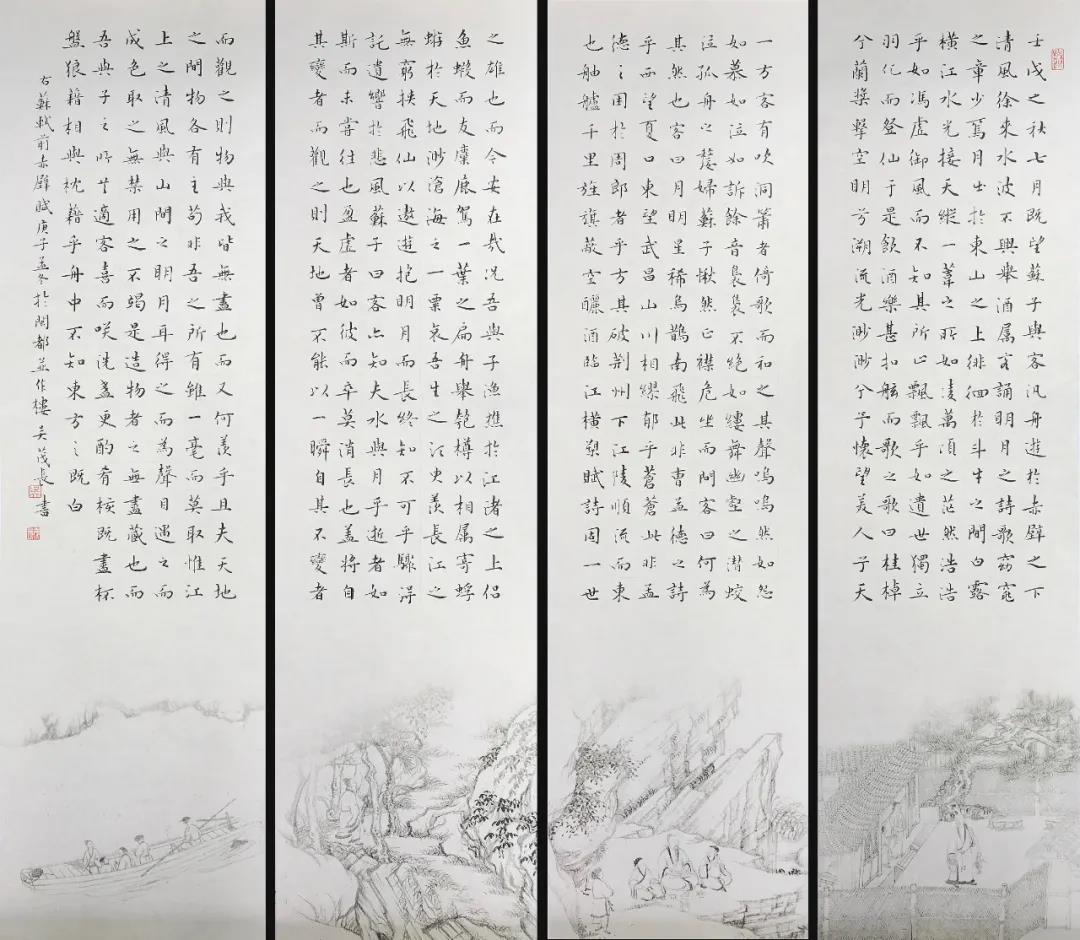 壬戌之秋七月既望蘇子與客汎舟遊於赤壁之下
清風徐來水波不興舉酒属客誦明月之詩歌窈窕
之章少焉月出於東山之上徘徊於斗牛之間白露
橫江水光接天縱一葦之所如淩萬頃之茫然浩浩
乎如馮虛御風而不知其所止飄飄乎如遺世獨立
羽化而登仙于是飲酒樂甚扣舷而歌之歌曰桂棹
兮蘭槳擊空明兮溯流光渺渺兮予懷望美人兮天
一方客有吹洞簫者倚歌而和之其聲嗚嗚然如怨
如慕如泣如訴餘音裊裊不絕如縷舞幽壑之潛蛟
泣孤舟之嫠婦蘇子愀然正襟危坐而問客曰何為
其然也客曰月明星稀烏鵲南飛此非曹孟德之詩
乎西望夏口東望武昌山川相繆郁乎蒼蒼此非孟
德之困於周郎者乎方其破荊州下江陵順流而東
也舳艫千里旌旗蔽空釃酒臨江橫槊賦詩固一世
之雄也而今安在哉況吾與子漁樵於江渚之上侶
魚蝦而友麋鹿駕一葉之扁舟舉匏樽以相属寄蜉
蝣於天地渺滄海之一粟哀吾生之須臾羨長江之
無窮挾飛仙以遨遊抱明月而長終知不可乎驟得
託遺響於悲風蘇子曰客亦知夫水與月乎逝者如
斯而未嘗往也盈虛者如彼而卒莫消長也蓋將自
其變者而觀之則天地曾不能以一瞬自其不變者
而觀之則物與我皆無盡也而又何羨乎且夫天地
之間物各有主苟非吾之所有雖一毫而莫取惟江
上之清風與山間之明月耳得之而為聲目遇之而
成色取之無禁用之不竭是造物者之無盡藏也而
吾與子之所共適客喜而咲洗盞更酌肴核既盡杯
盤狼籍相與枕藉乎舟中不知東方之既白
右蘇軾前赤壁賦庚子孟冬於閩都並作樓吴茂長書